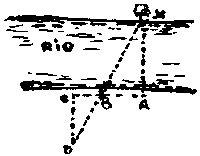 X
RIO
C
B
A
D